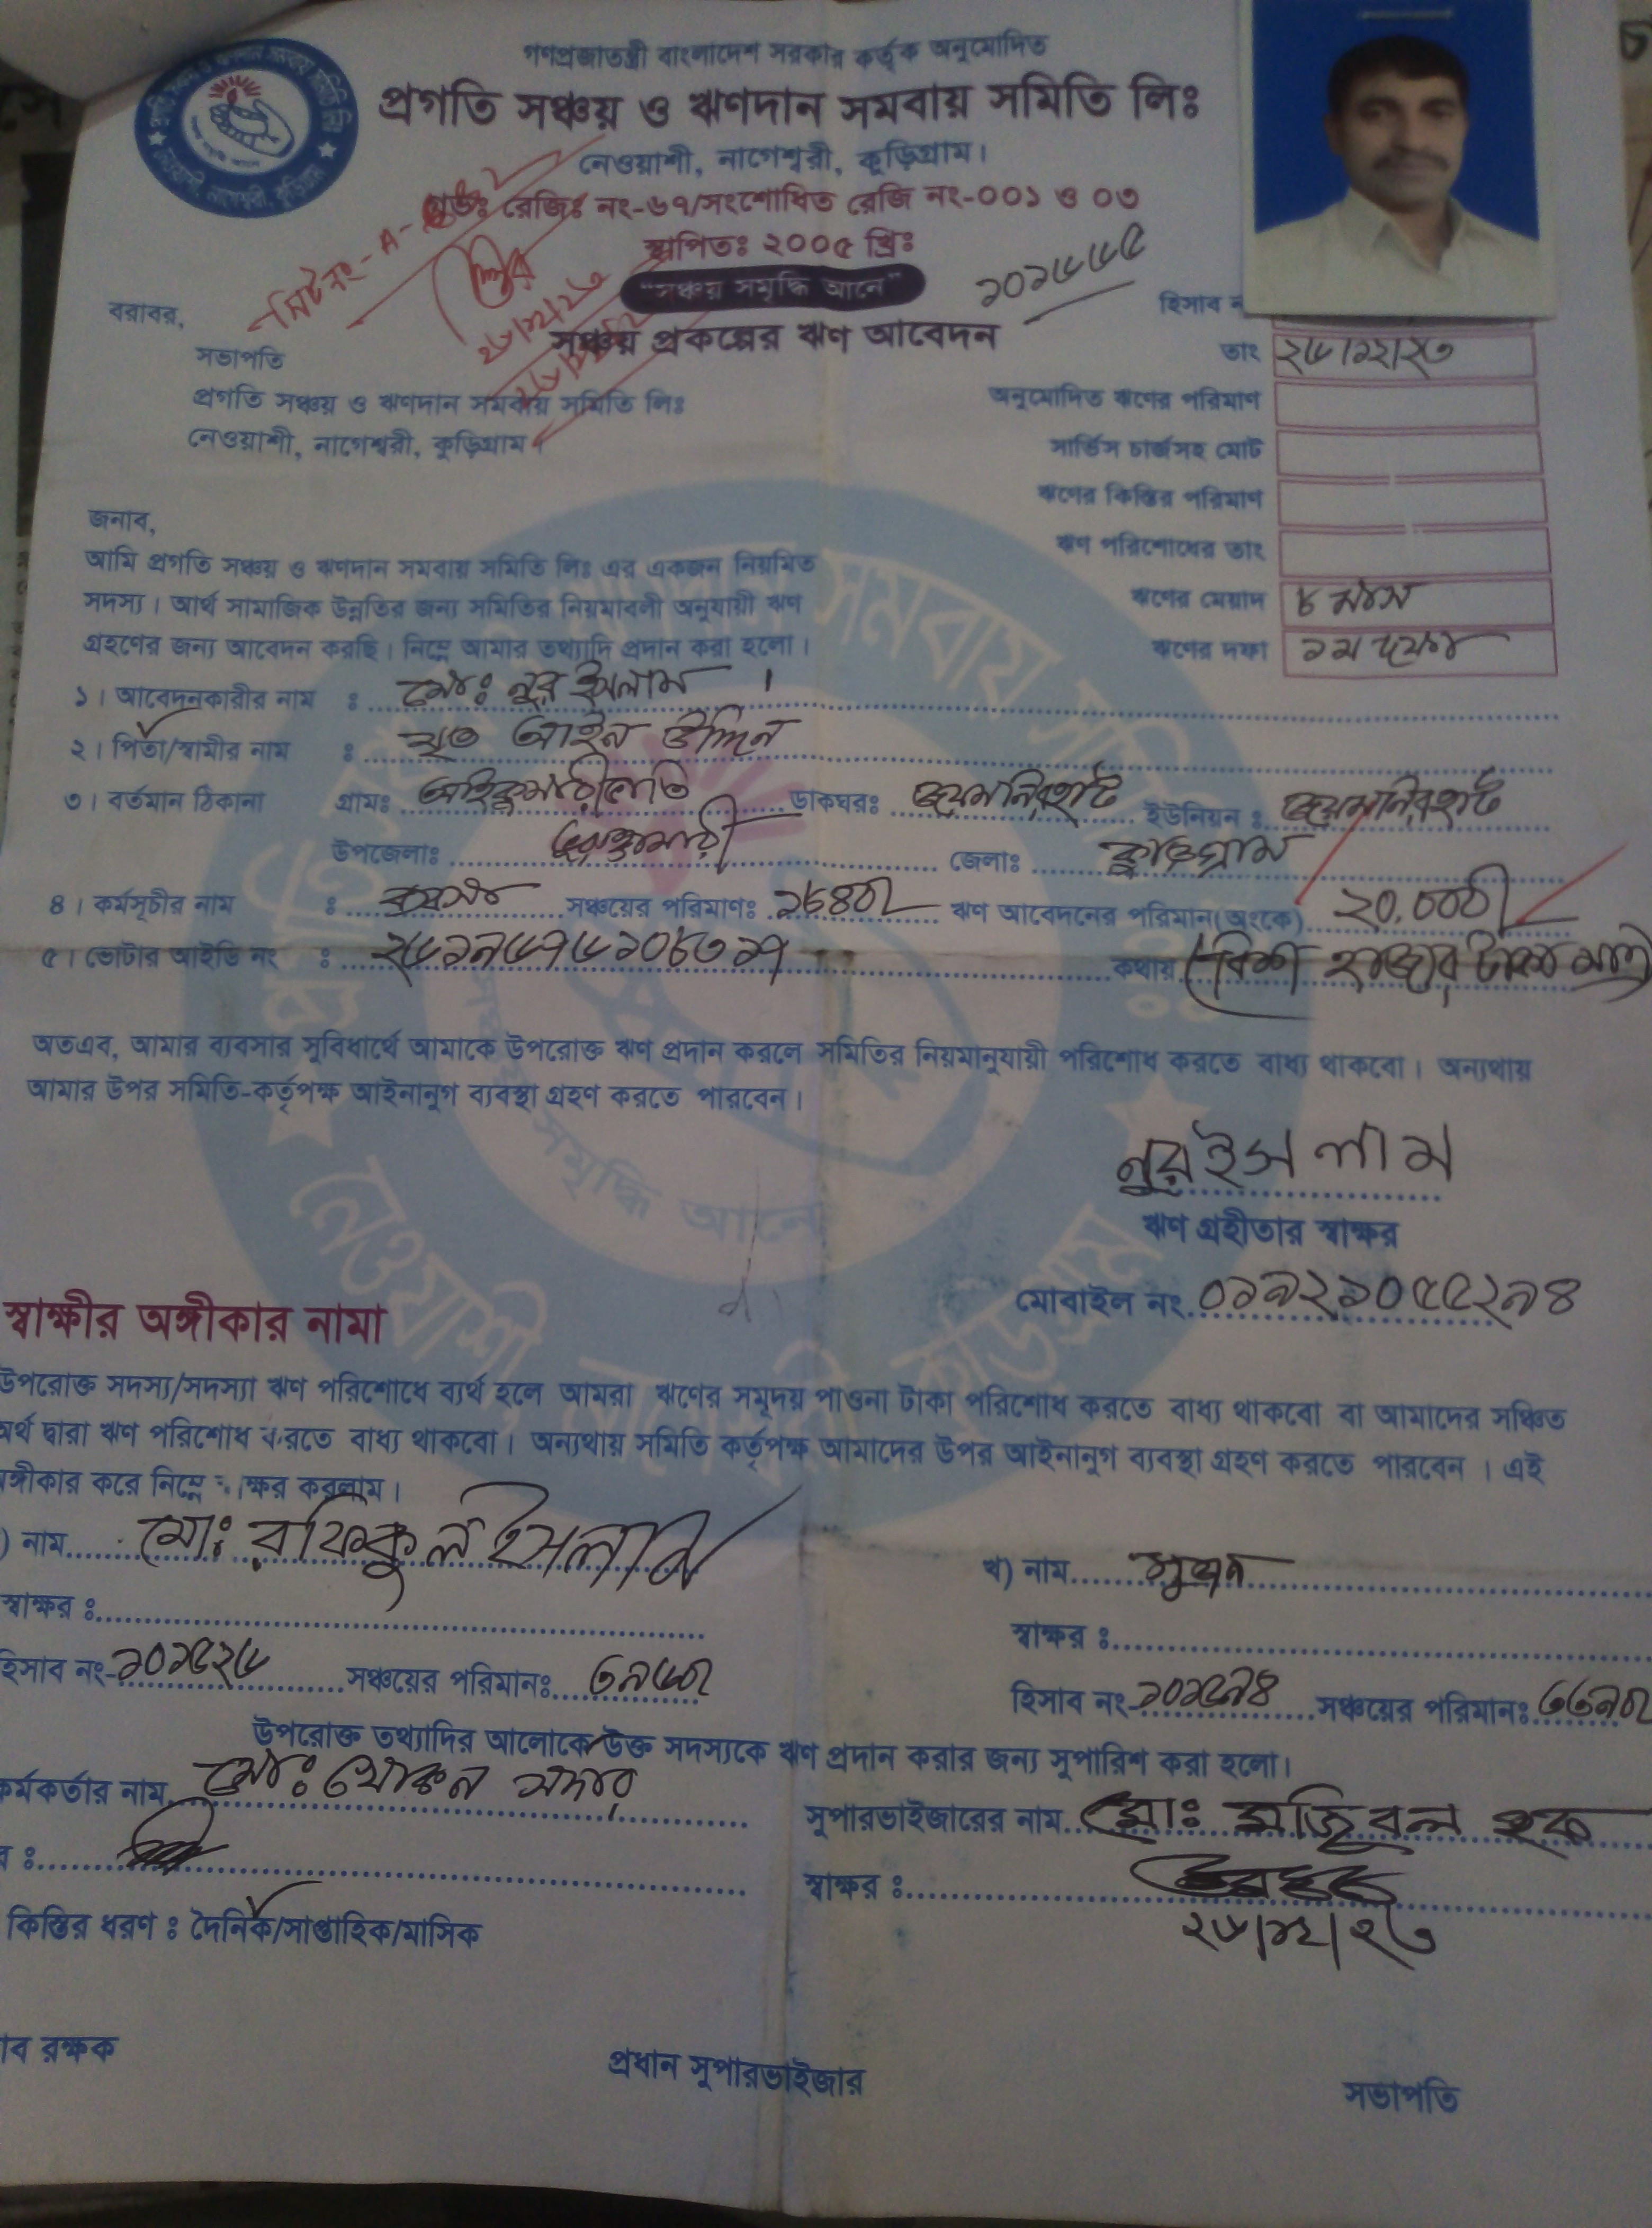 গণপ্রজাতন্ত্রী বাংলাদেশ সরকার কর্তৃক অনুমোদিত
প্রগতি সঞ্চয় ও ঋণদান সমবায় সমিতি লিঃ
নেওয়াশী, নাগেশ্বরী, কুড়িগ্রাম।
রেজিঃ নং-৬৭/সংশোধিত রেজি নং-০০১ ও ০৩
স্থাপিতঃ ২০০৫ খ্রিঃ
"সঞ্চয় সমৃদ্ধি আনে"
সঞ্চয় প্রকল্পের ঋণ আবেদন
১০১৬৬৫
হিসাব ন
তাং ২৬/১২/২৩
অনুমোদিত ঋণের পরিমাণ
সার্ভিস চার্জসহ মোট
ঋণের কিস্তির পরিমাণ
ঋণ পরিশোধের তাং
ঋণের মেয়াদ ৮ মাস
ঋণের দফা ১ম দফা
বরাবর,
সভাপতি
প্রগতি সঞ্চয় ও ঋণদান সমবায় সমিতি লিঃ
নেওয়াশী, নাগেশ্বরী, কুড়িগ্রাম।
জনাব,
আমি প্রগতি সঞ্চয় ও ঋণদান সমবায় সমিতি লিঃ এর একজন নিয়মিত
সদস্য। আর্থ সামাজিক উন্নতির জন্য সমিতির নিয়মাবলী অনুযায়ী ঋণ
গ্রহণের জন্য আবেদন করছি। নিম্নে আমার তথ্যাদি প্রদান করা হলো।
১। আবেদনকারীর নাম : মোঃ নুর ইসলাম।
২। পিতা/স্বামীর নাম : মৃত আইন উদ্দিন
৩। বর্তমান ঠিকানা গ্রামঃ ডাকঘরঃ জয়মনিরহাট ইউনিয়ন : জয়মনিরহাট
উপজেলাঃ ভুরুঙ্গামারী জেলাঃ কুড়িগ্রাম
৪। কর্মসূচীর নাম : ব্যবসা সঞ্চয়ের পরিমাণঃ ১৮৪০/ ঋণ আবেদনের পরিমান(অংকে) ২০,০০০/
৫। ভোটার আইডি নং : কথায় (বিশ হাজার টাকা মাত্র)
অতএব, আমার ব্যবসার সুবিধার্থে আমাকে উপরোক্ত ঋণ প্রদান করলে সমিতির নিয়মানুযায়ী পরিশোধ করতে বাধ্য থাকবো। অন্যথায়
আমার উপর সমিতি-কর্তৃপক্ষ আইনানুগ ব্যবস্থা গ্রহণ করতে পারবেন।
নুরইসলাম
ঋণ গ্রহীতার স্বাক্ষর
মোবাইল নং ০১৯২১০৫৫২৯৪
স্বাক্ষীর অঙ্গীকার নামা
উপরোক্ত সদস্য/সদস্যা ঋণ পরিশোধে ব্যর্থ হলে আমরা ঋণের সমূদয় পাওনা টাকা পরিশোধ করতে বাধ্য থাকবো বা আমাদের সঞ্চিত
অর্থ দ্বারা ঋণ পরিশোধ করতে বাধ্য থাকবো। অন্যথায় সমিতি কর্তৃপক্ষ আমাদের উপর আইনানুগ ব্যবস্থা গ্রহণ করতে পারবেন। এই
ঙ্গীকার করে নিম্নে ক্ষর করলাম।
) নাম মোঃ রফিকুল ইসলাম
খ) নাম সুজন
স্বাক্ষর :
স্বাক্ষর :
হিসাব নং-১০১৫২৬ সঞ্চয়ের পরিমানঃ ৩৯৬০/
হিসাব নং-১০১৫৯৪ সঞ্চয়ের পরিমানঃ ৩৩৯০/
উপরোক্ত তথ্যাদির আলোকে উক্ত সদস্যকে ঋণ প্রদান করার জন্য সুপারিশ করা হলো।
কর্মকর্তার নাম মোঃ খোকন সদার
সুপারভাইজারের নাম মোঃ মজিবল হক
র :
স্বাক্ষর :
২৬/১২/২৩
কিস্তির ধরণ : দৈনিক/সাপ্তাহিক/মাসিক
াব রক্ষক
প্রধান সুপারভাইজার
সভাপতি